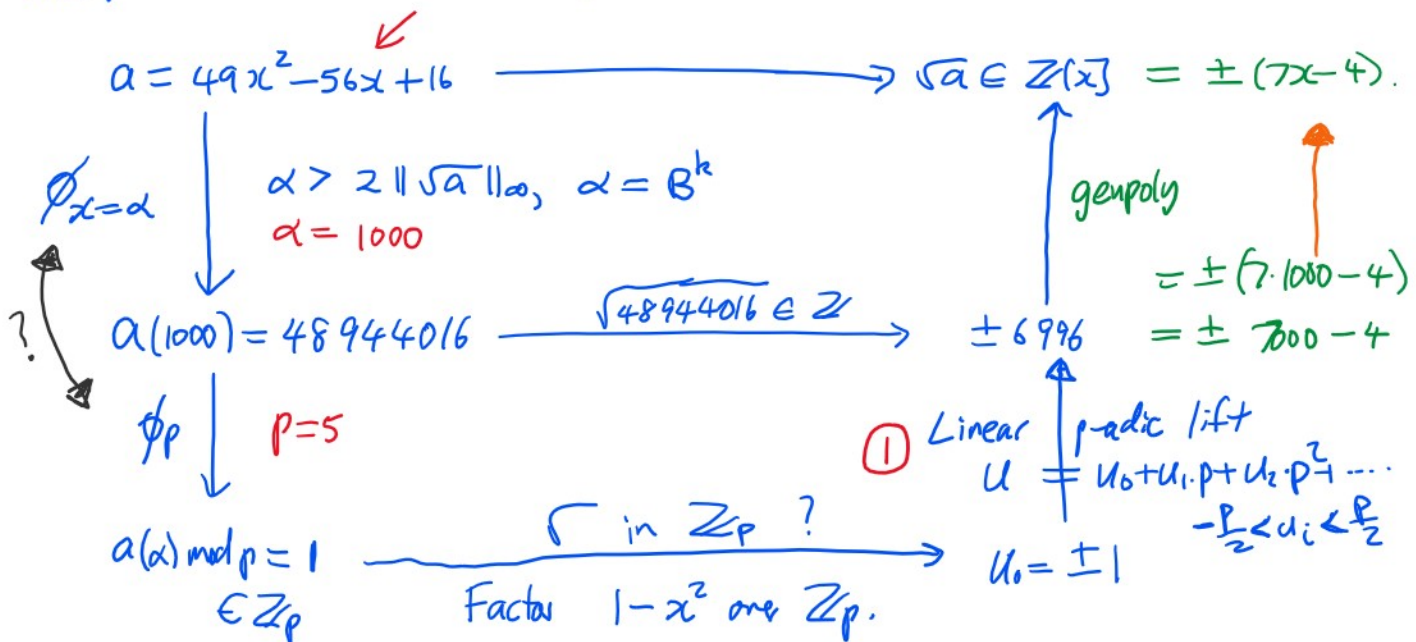 a = 49x² − 56x + 16 → √a ∈ ℤ[x] = ± (7x − 4).
ϕx=α α > 2 ‖√a‖∞, α = Bᵏ genpoly
α = 1000
= ± (7·1000 − 4)
? a(1000) = 48944016 √48944016 ∈ ℤ ± 6996 = ± 7000 − 4
ϕp p=5 ① Linear p-adic lift
u = u₀ + u₁·p + u₂·p² + ....
−p/2 < uᵢ < p/2
a(α) mod p = 1 √ in ℤp ? u₀ = ± 1
∈ ℤp Factor 1 − x² over ℤp.